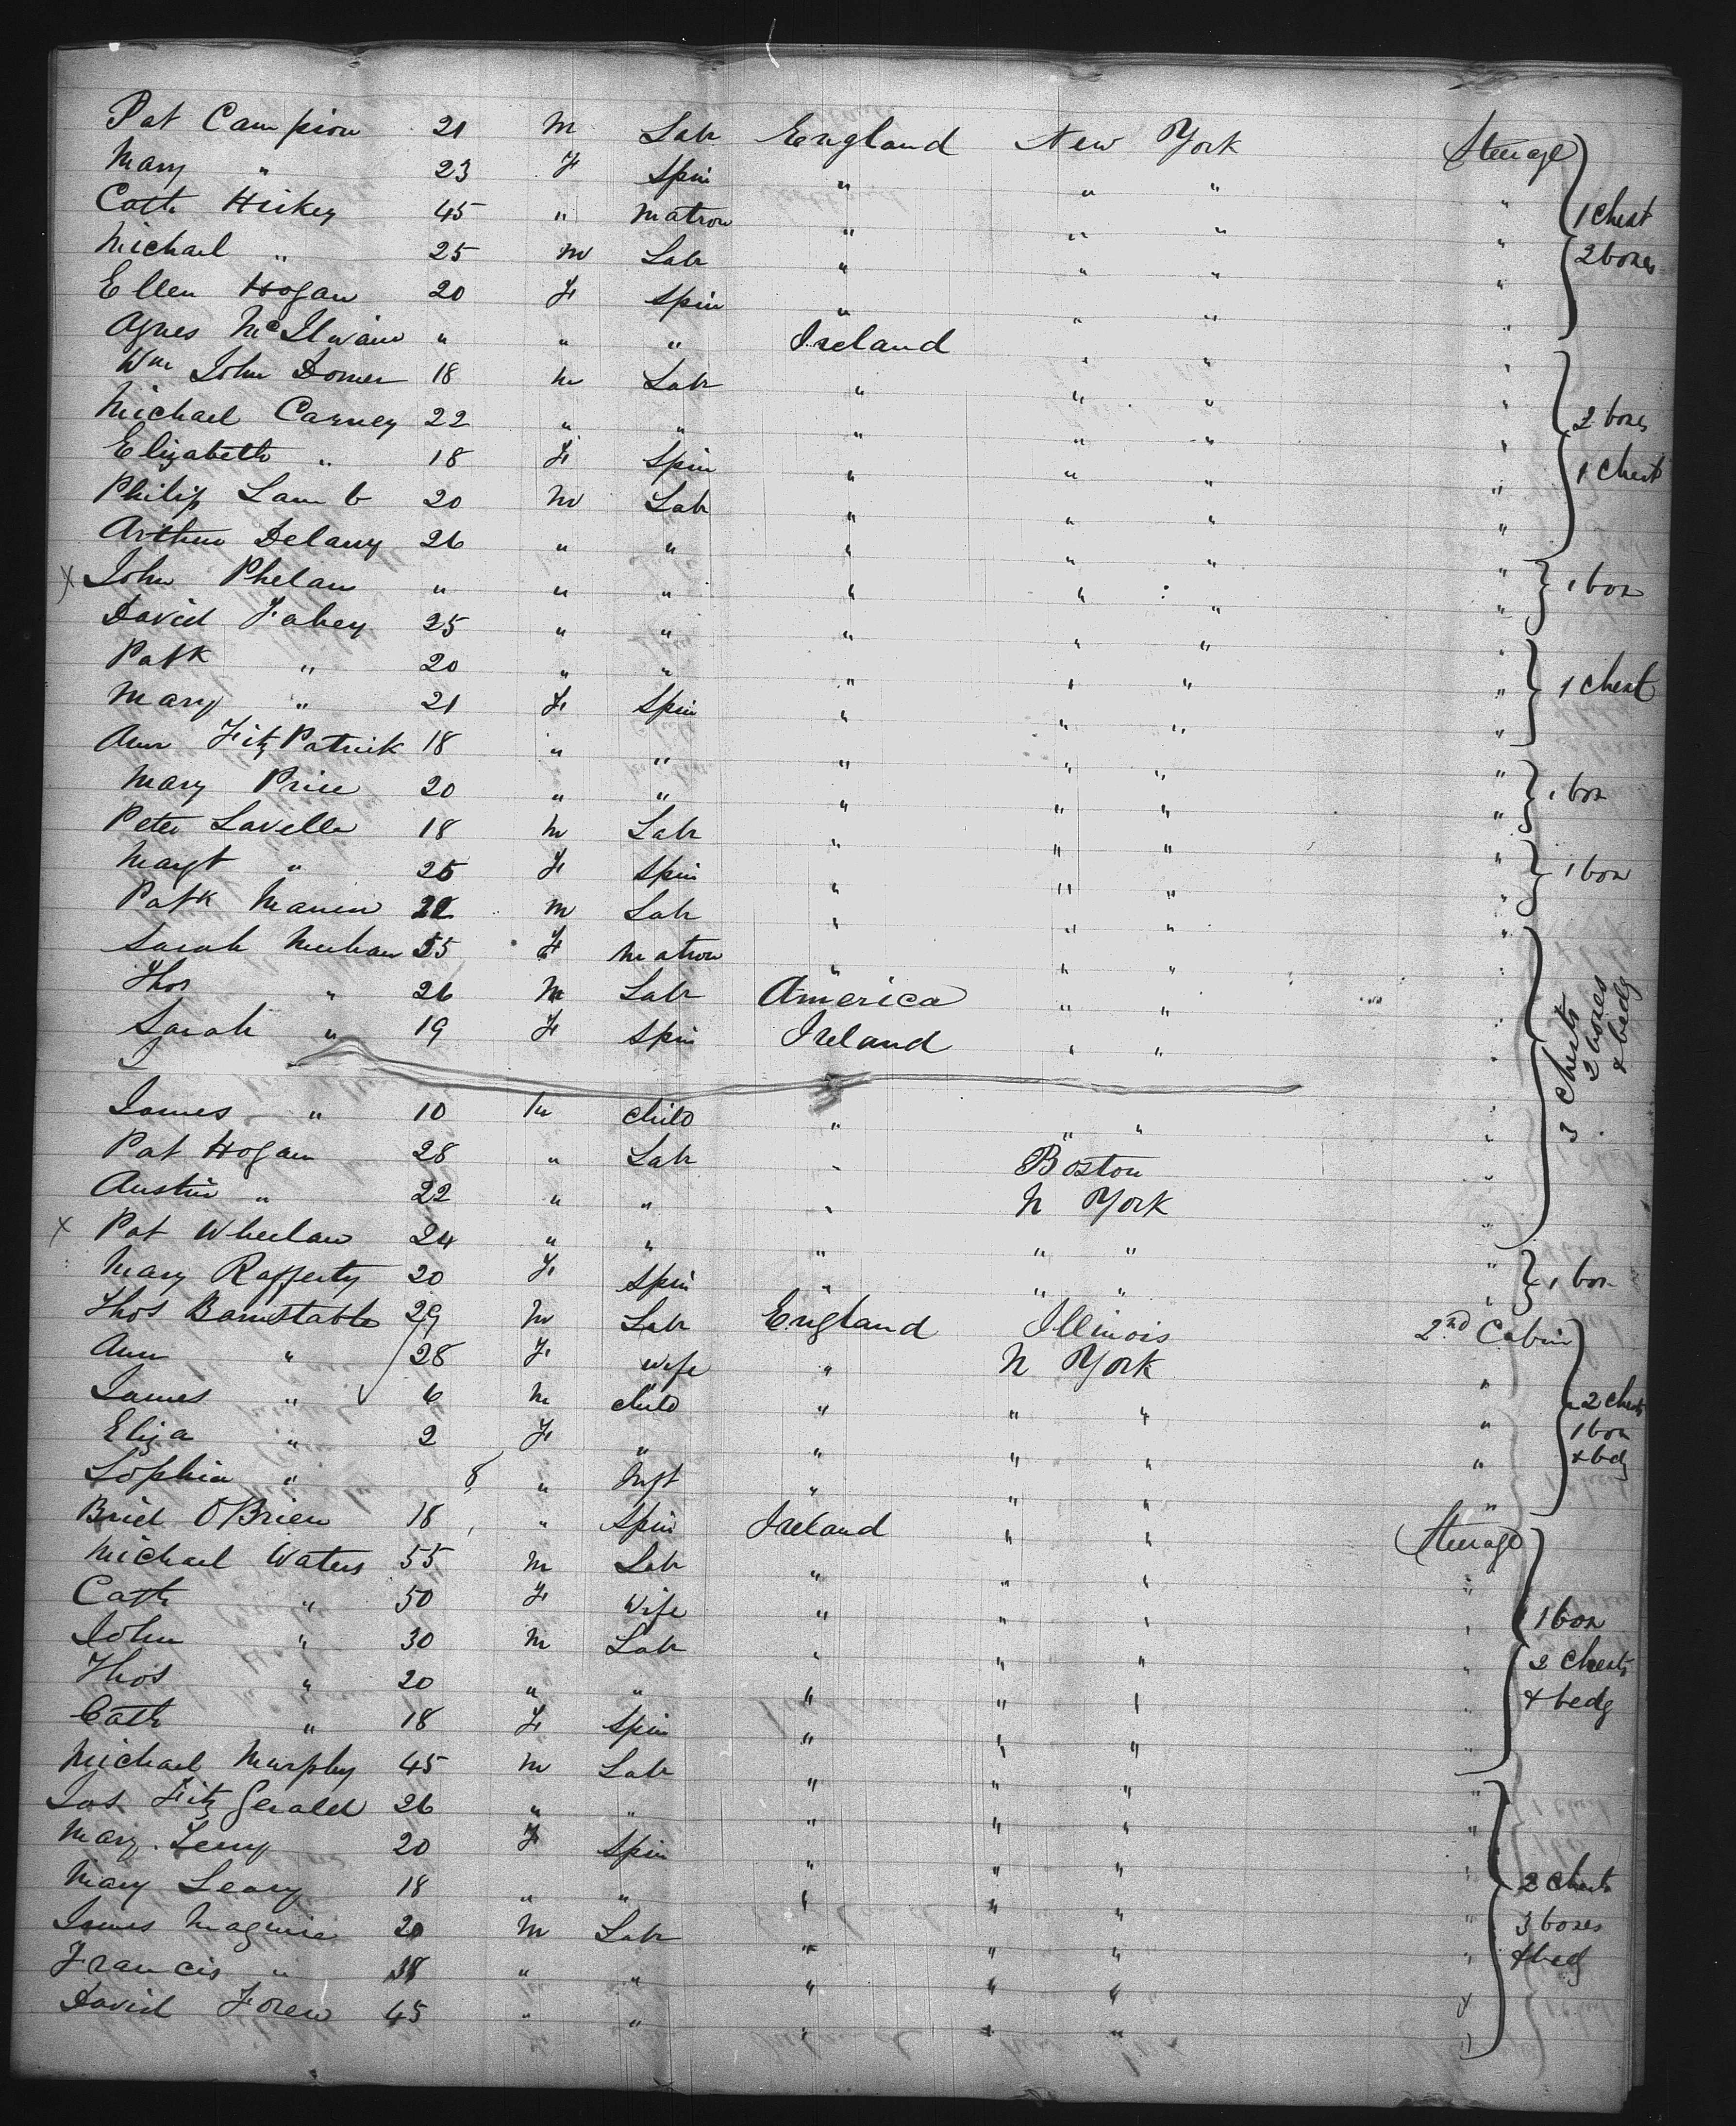 Pat Campion 21 M Labr England New York Steerage
Mary " 23 F Spin " " " "
Cath Hickey 45 " Matron " " " " 1 Chest
Michael " 25 M Labr " " " " 2 boxes
Ellen Hogan 20 F Spin " " " "
Agnes McIlwain " " " Ireland " " "
Wm John Domer 18 M Labr " " " "
Michael Carney 22 " " " " " " 2 boxes
Elizabeth " 18 F Spin " " " " 1 Chest
Philip Lamb 20 M Labr " " " "
Arthur Delany 26 " " " " " "
x John Phelan " " " " " " " 1 box
David Fahey 25 " " " " " "
Patk " 20 " " " " " " 1 Chest
Mary " 21 F Spin " " " "
Ann FitzPatrick 18 " " " " " "
Mary Price 20 " " " " " " 1 box
Peter Lavelle 18 M Labr " " " "
Margt " 25 F Spin " " " " 1 box
Patk 22 M Labr " " " "
Sarah Meehan 55 F Matron " " " "
Thos " 26 M Labr America " " "
Sarah " 19 F Spin Ireland " " " 3 Chests 2 boxes & bedg
James " 10 M Child " " " "
Pat Hogan 28 " Labr " Boston "
Austin " 22 " " " N York "
x Pat Wheelan 24 " " " " " "
Mary Rafferty 20 F Spin " " " " 1 box
Thos Barnstable 29 M Labr England Illinois 2nd Cabin
Ann " 28 F Wife " N York "
James " 6 M Child " " " " 2 Chests
Eliza " 2 F " " " " " 1 box
Sophia " 8 " Inft " " " " & bedg
Brid O'Brien 18 " Spin Ireland " " Steerage
Michael Waters 55 M Labr " " " "
Cath " 50 F Wife " " " " 1 box
John " 30 M Labr " " " " 2 Chests
Thos " 20 " " " " " " & bedg
Cath " 18 F Spin " " " "
Michael Murphy 45 M Labr " " " "
Jas FitzGerald 26 " " " " " "
Mary 20 F Spin " " " "
Mary Leary 18 " " " " " " 2 Chests
James Maguire 20 M Labr " " " " 3 boxes
Francis " 18 " " " " " " & bedg
David 45 " " " " " "